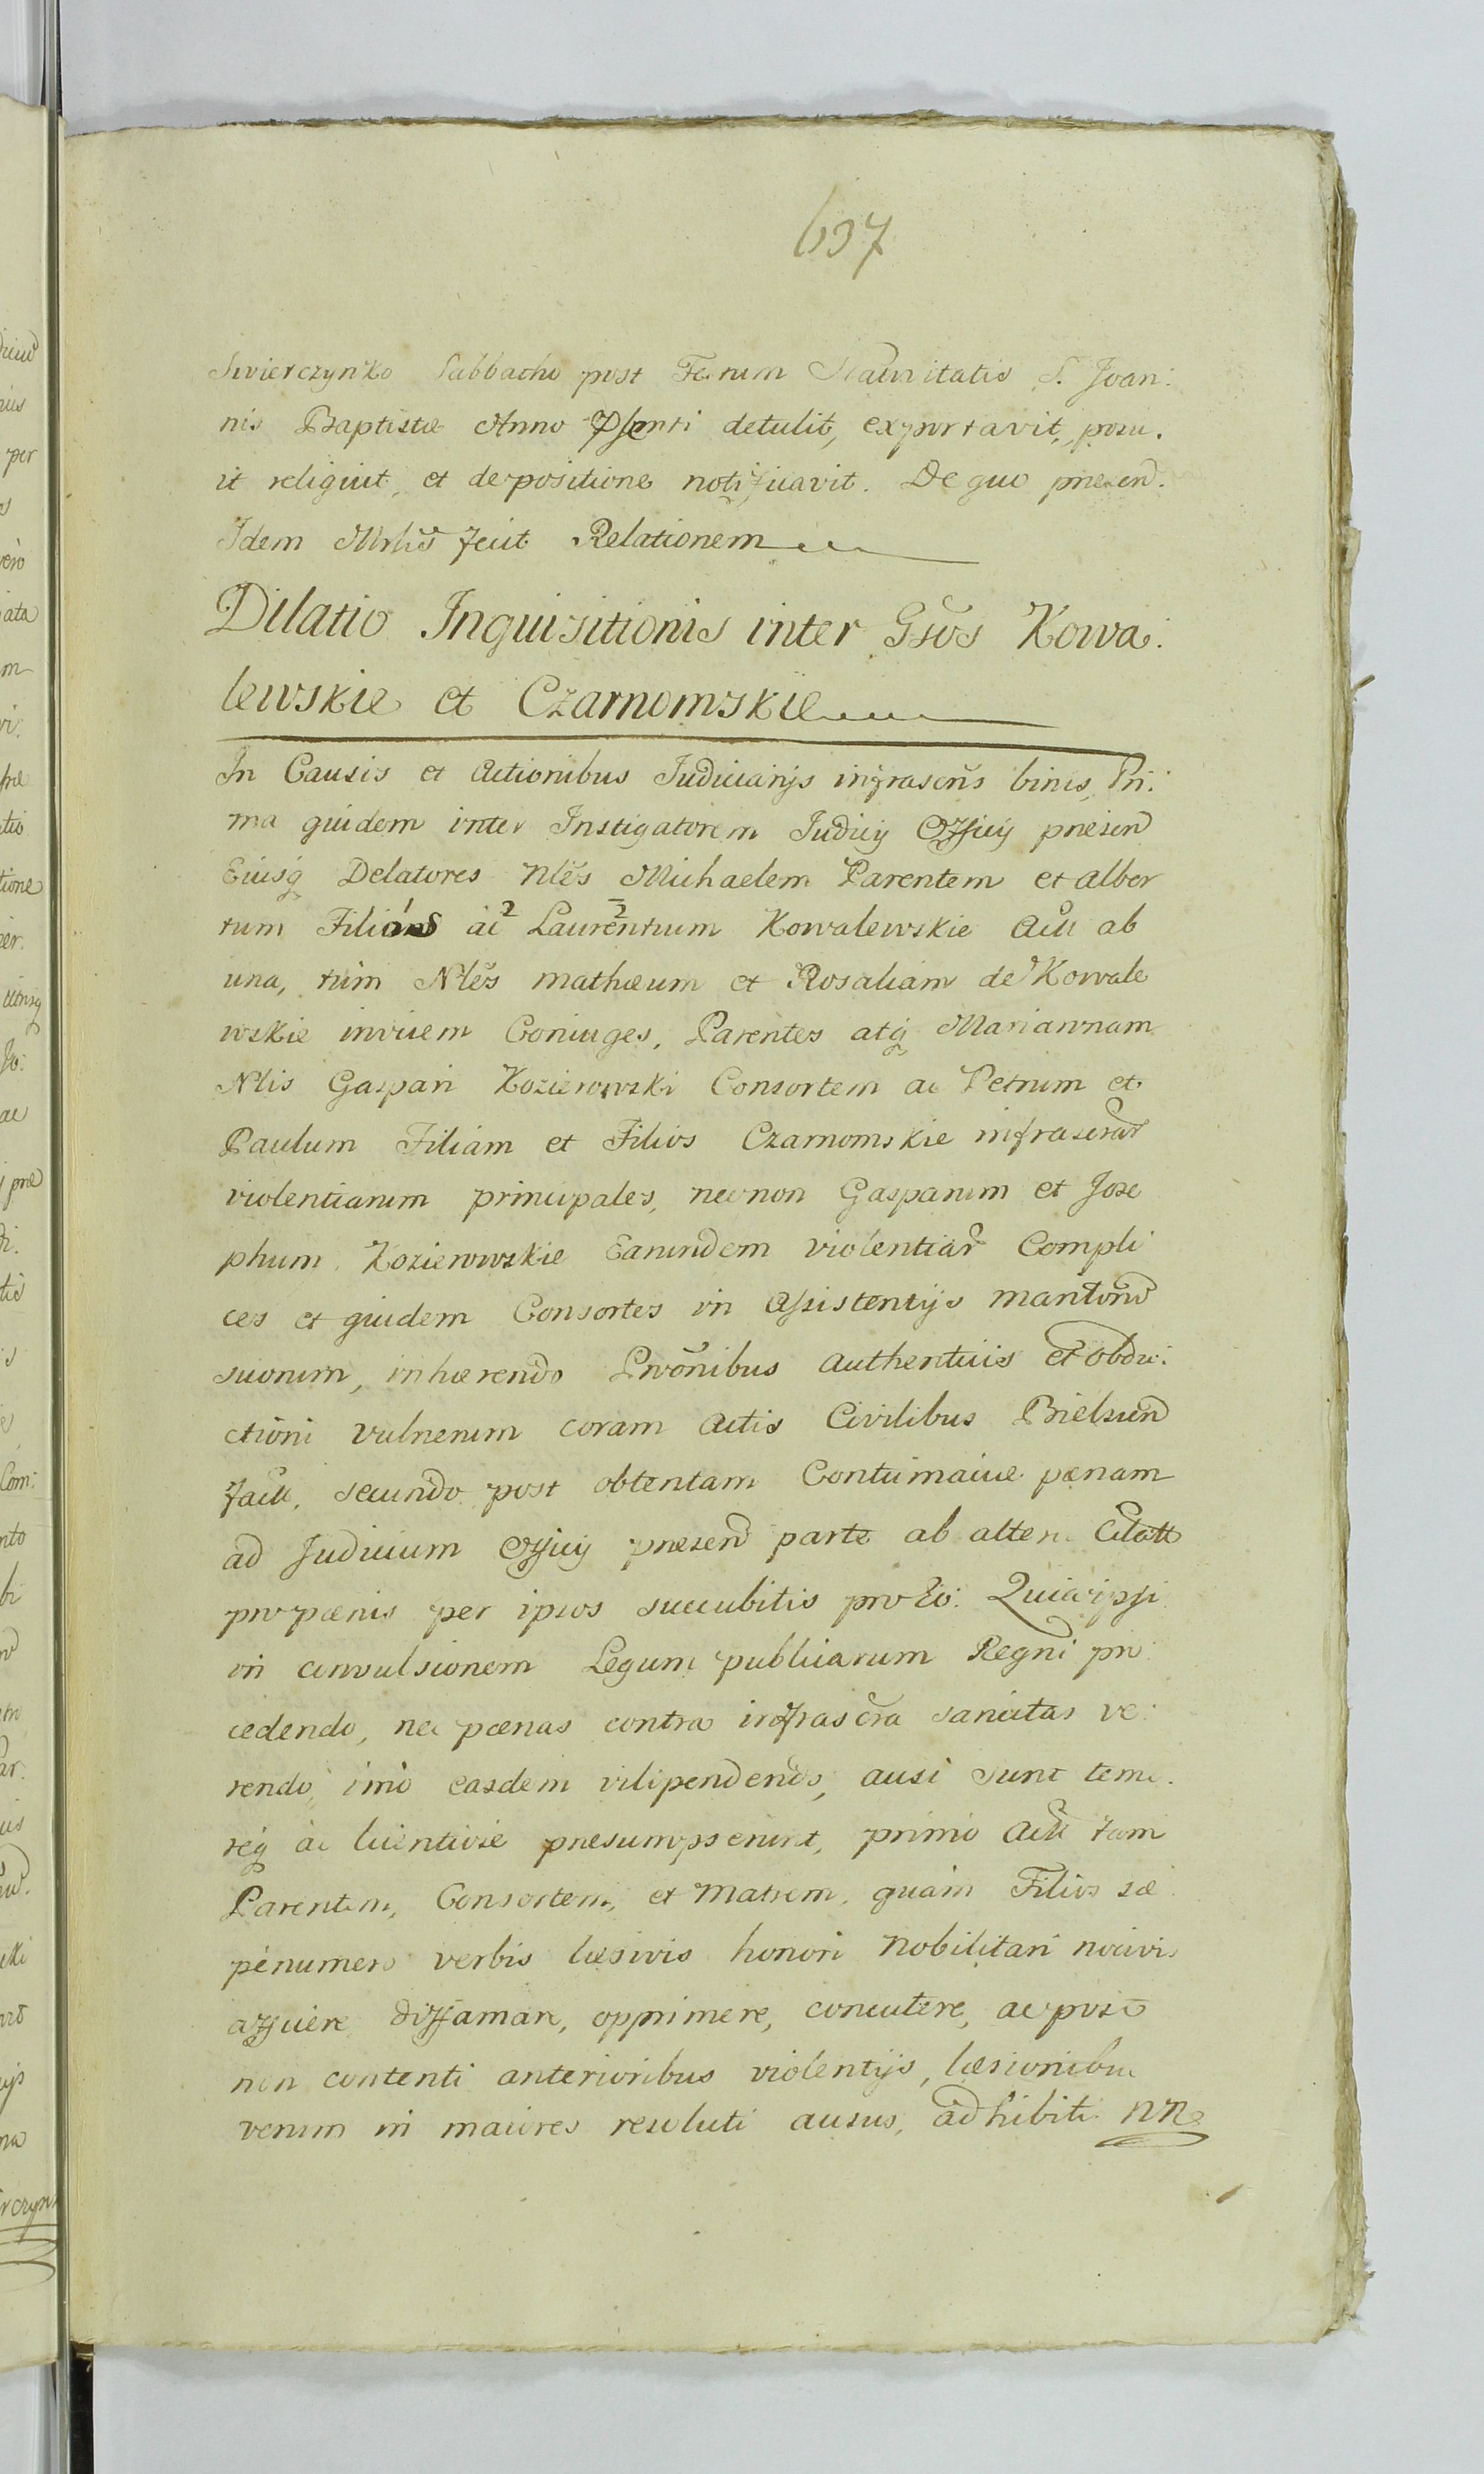 637
Swierczynko Sabbatho post Festum Nativitatis S. Joan:
nis Baptistæ Anno Pssenti detulit, exportavit, posu.
it reliquit, et de positione notificavit. De quo præsen.
Idem Mrlis fecit Relationem
Dilatio Inquisitionis inter Gsos Kowa:
lewskie et Czarnomskie
In Causis et Actionibus Judiciarijs infrascris binis, Pri:
ma quidem inter Instigatorem Judicij Officij præsen
Eiusq Delatores Nles Michaelem Parentem et Alber
tum Filios ac Laurentium Kowalewskie Act ab
una, tum Nles Mathæum et Rosaliam de Kowale
wskie invicem Coniuges, Parentes atq Mariannam
Nlis Gaspari Kozierowski Consortem ac Petrum et
Paulum Filiam et Filios Czarnomskie infrascrar
violentiarum principales, necnon Gasparum et Jose
phum Kozierowskie Earundem violentiar Compli
ces et quidem Consortes in Assistentijs maritorum
suorum, inhærendo Prōnibus Authenticis et obdu:
ctioni vulnerum coram Actis Civilibus Bielscen
fact, secundo post obtentam Contumaciæ pænam
ad Judicium Officij præsen parte ab altera Citatt
pro pænis per ipsos succubitis pro Eo: Quia ipsi
in convulsionem Legum publicarum Regni pro
cedendo, nec pænas contra infrascra sancitas ve:
rendo, imo easdem vilipendendo, ausi sunt teme.
req ac licentiose præsumpserunt, primo Act tam
Parentem, Consortem, et Matrem, quam Filios sæ
penumero verbis læsivis honori Nobilitari nocivis
afficere diffamare, opprimere, concutere, ac post
non contenti anterioribus violentijs, læsionibu
verum in maiores resoluti ausus, adhibitis nn